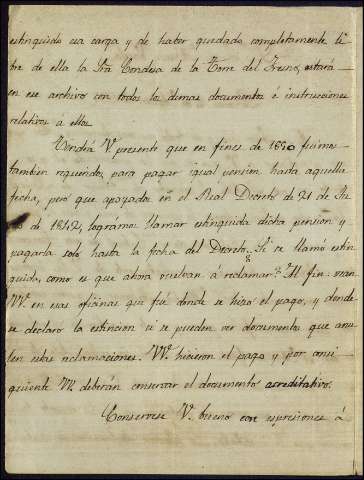 estinguido esa carga y de haber quedado completamente li
bre de ella la Sra Condesa de la Torre del Fresno, estará
en ese archivo con todos los demas documentos é instrucciones
relativos á ellos.
Tendrá V. presente que en fines de 1850 fuimos
tambien requeridos para pagar igual pension hasta aquella
fecha, pero que apoyados en el Real Decreto de 21 de Ju
de 1842, logramos llamar estinguida dicha pension y
pagarla solo hasta la fecha del Decreto. Si se llamó estin
guida, como es que ahora vuelven á reclamar? Al fin vean
VV. en esas oficinas que fué donde se hizo el pago, y donde
se declaro la estincion si se pueden ver documentos que anu
len estas reclamaciones. VV. hicieron el pago y por consi
guiente VV. deberán conservar el documento acreditativo.
Conservese V. bueno con espresiones á